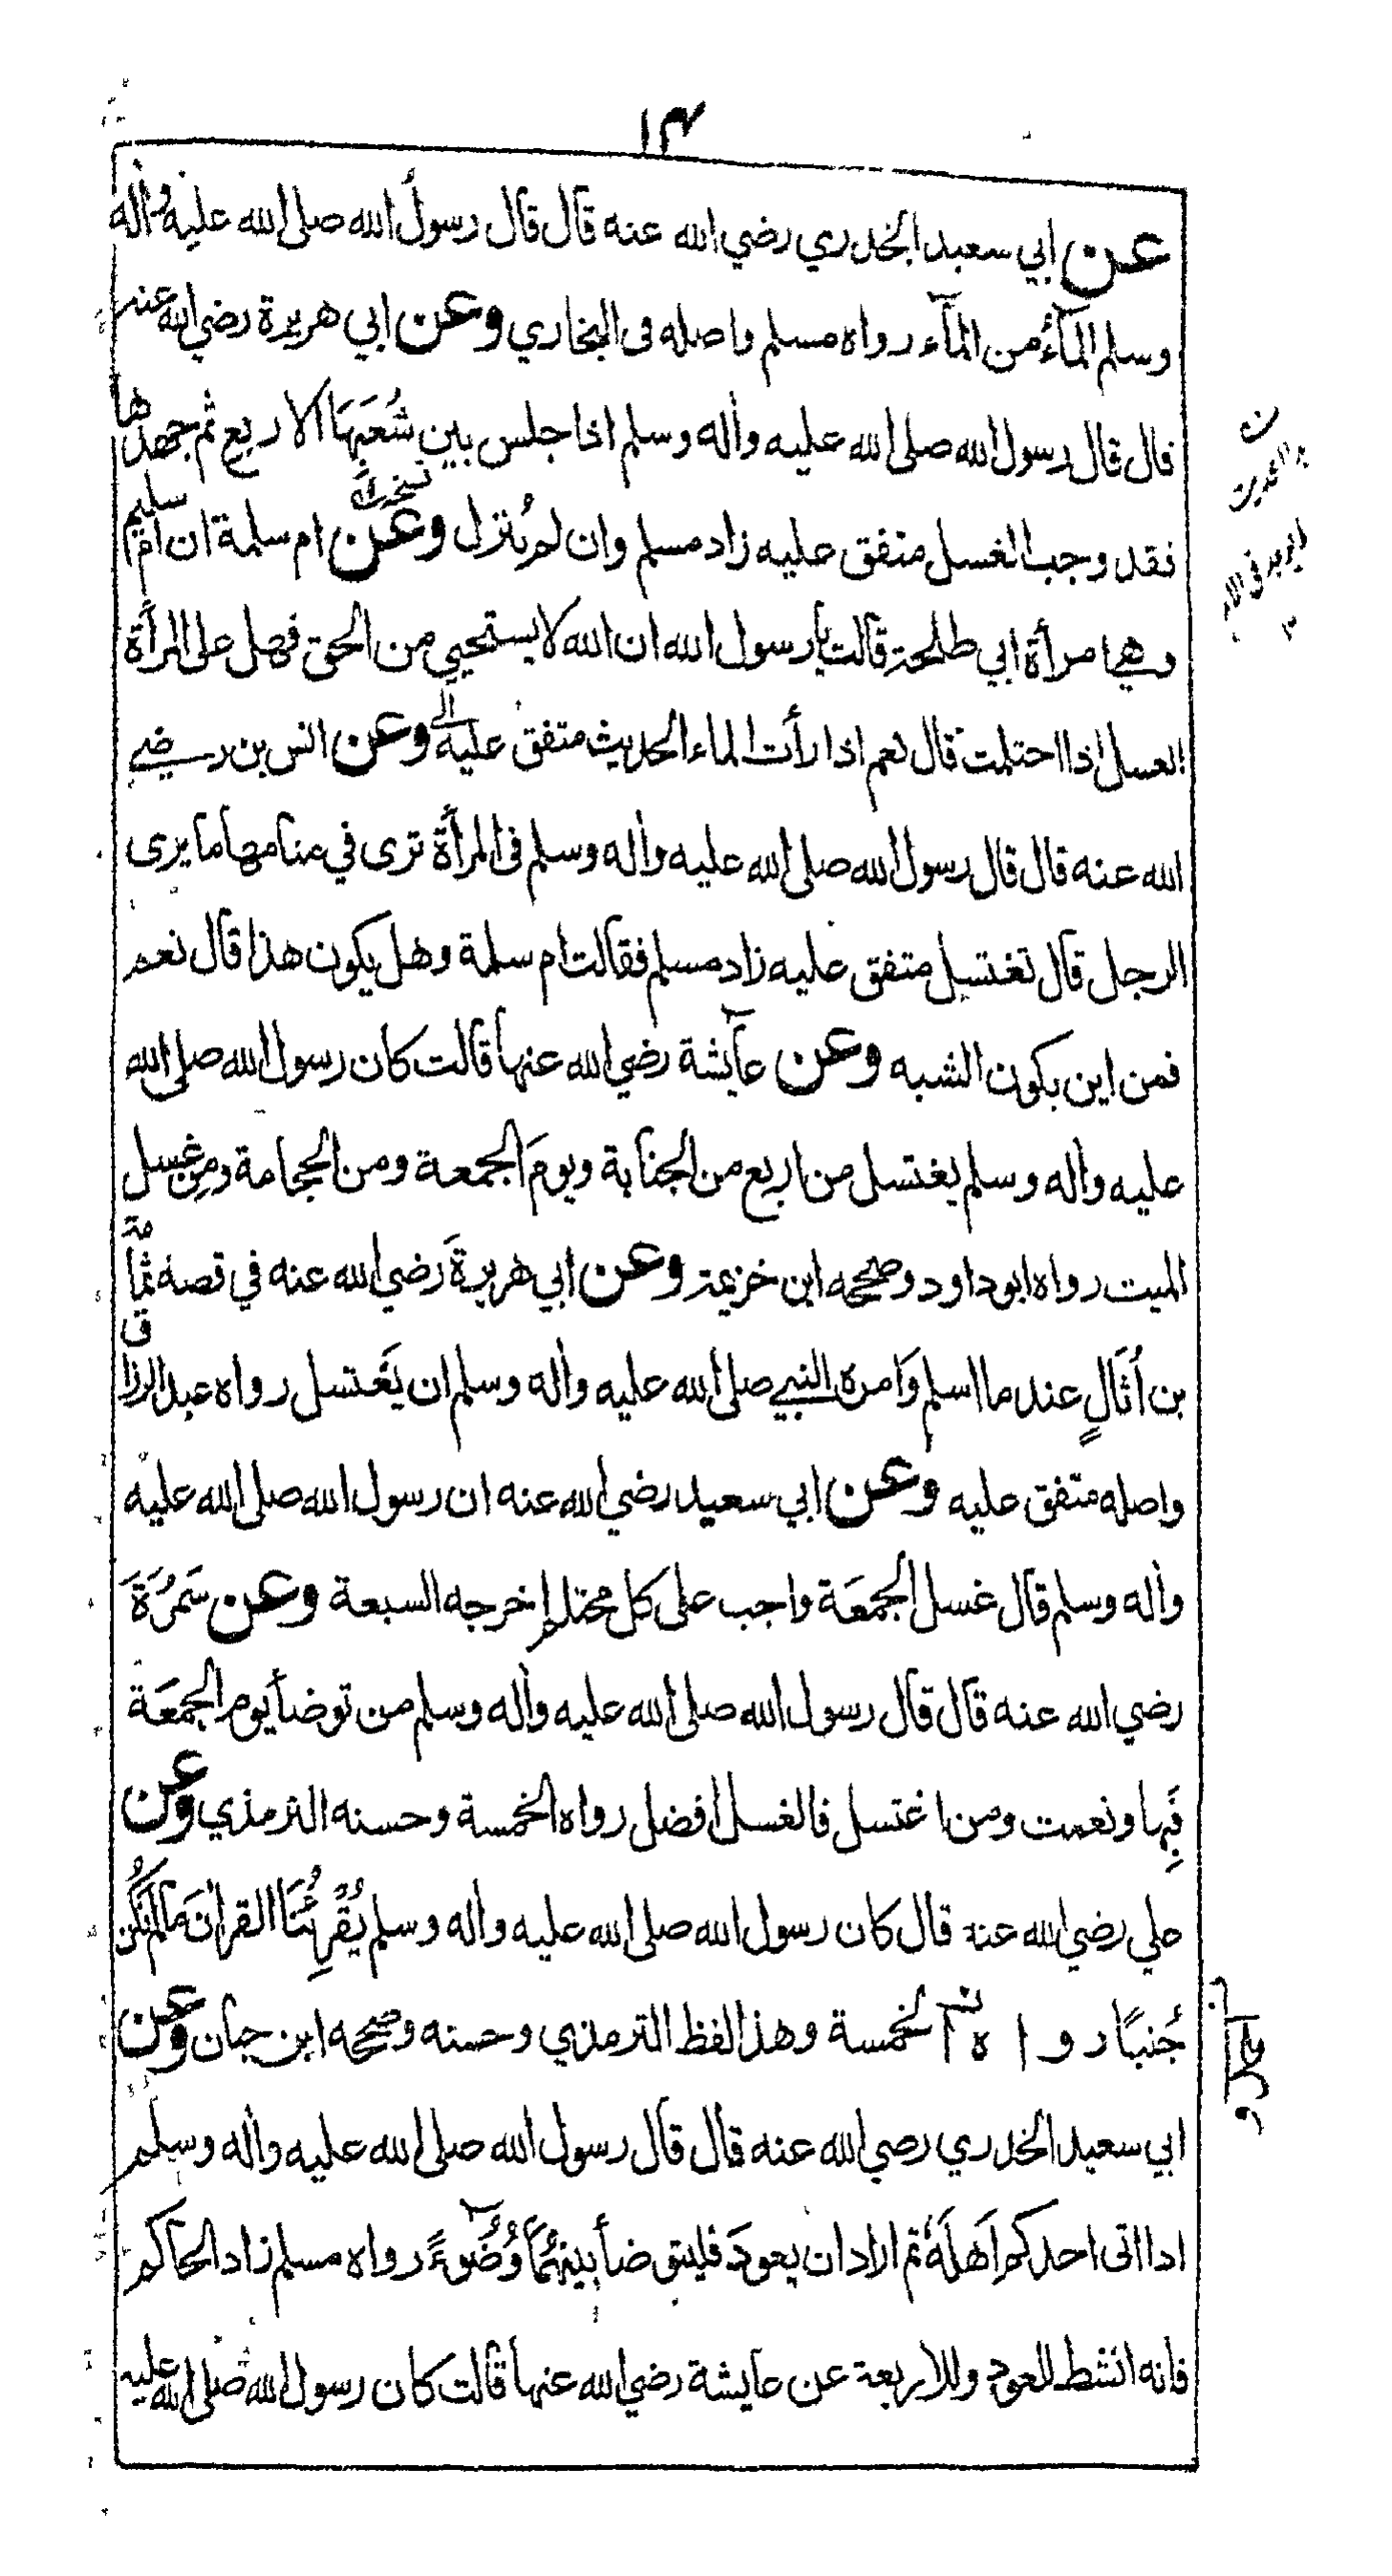 ١٤
عن ابي سعيد الخدري رضي الله عنه قال قال رسول الله صلى الله عليه واٰله
وسلم المآءُ من المآء رواه مسلم واصله فى البخاري وعن ابي هريرة رضي الله عنه
قال قال رسول الله صلى الله عليه واٰله وسلم اذا جلس بين شُعَبِهَا الاربع ثم جهدها
فقد وجب الغسل متفق عليه زاد مسلم وان لم يُنزل وعن ام سلمة ان ام سليم
وهي امرأة ابي طلحة قالت يا رسول الله ان الله لا يستحيي من الحق فهل على المرأة
الغسل اذا احتلمت قال نعم اذا رأت الماء الحديث متفق عليه وعن انس بن رضي
الله عنه قال قال رسول الله صلى الله عليه واٰله وسلم فى المرأة ترى في منامها ما يرى
الرجل قال تغتسل متفق عليه زاد مسلم فقالت ام سلمة وهل يكون هذا قال نعم
فمن اين يكون الشبه وعن عآيشة رضي الله عنها قالت كان رسول الله صلى الله
عليه واٰله وسلم يغتسل من اربع من الجنابة ويومَ الجمعة ومن الحجامة ومن غسل
الميت رواه ابوداود وصححه ابن خزيمة وعن ابي هريرةَ رضي الله عنه في قصة ثُمامة
بن أُثَالٍ عند ما اسلم وَامره النبي صلى الله عليه واٰله وسلم ان يَغتسل رواه عبد الرزاق
واصله متفق عليه وعن ابي سعيد رضي الله عنه ان رسول الله صلى الله عليه
واٰله وسلم قال غسل الجمعَة واجب على كل محتلم اخرجه السبعة وعن سَمُرَةَ
رضي الله عنه قال قال رسول الله صلى الله عليه واٰله وسلم من توضأ يوم الجمعَة
فَبِها ونعمت ومن اغتسل فالغسل افضل رواه الخمسة وحسنه الترمذي وعن
علي رضي الله عنه قال كان رسول الله صلى الله عليه واٰله وسلم يُقْرِئُنَا القراٰنَ مَا لَمْ يَكُن
جُنبًا رواه الخمسة وهذا لفظ الترمذي وحسنه وصححه ابن حبان وعن
ابي سعيد الخدري رضي الله عنه قال قال رسول الله صلى الله عليه واٰله وسلم
اذا اتى احدكم اَهلَهُ ثم اراد ان يعودَ فليتوضأ بينهُمَا وُضُوءً رواه مسلم زاد الحاكم
فانه انشط للعود وللاربعة عن عايشة رضي الله عنها قالت كان رسول الله صلى الله عليه